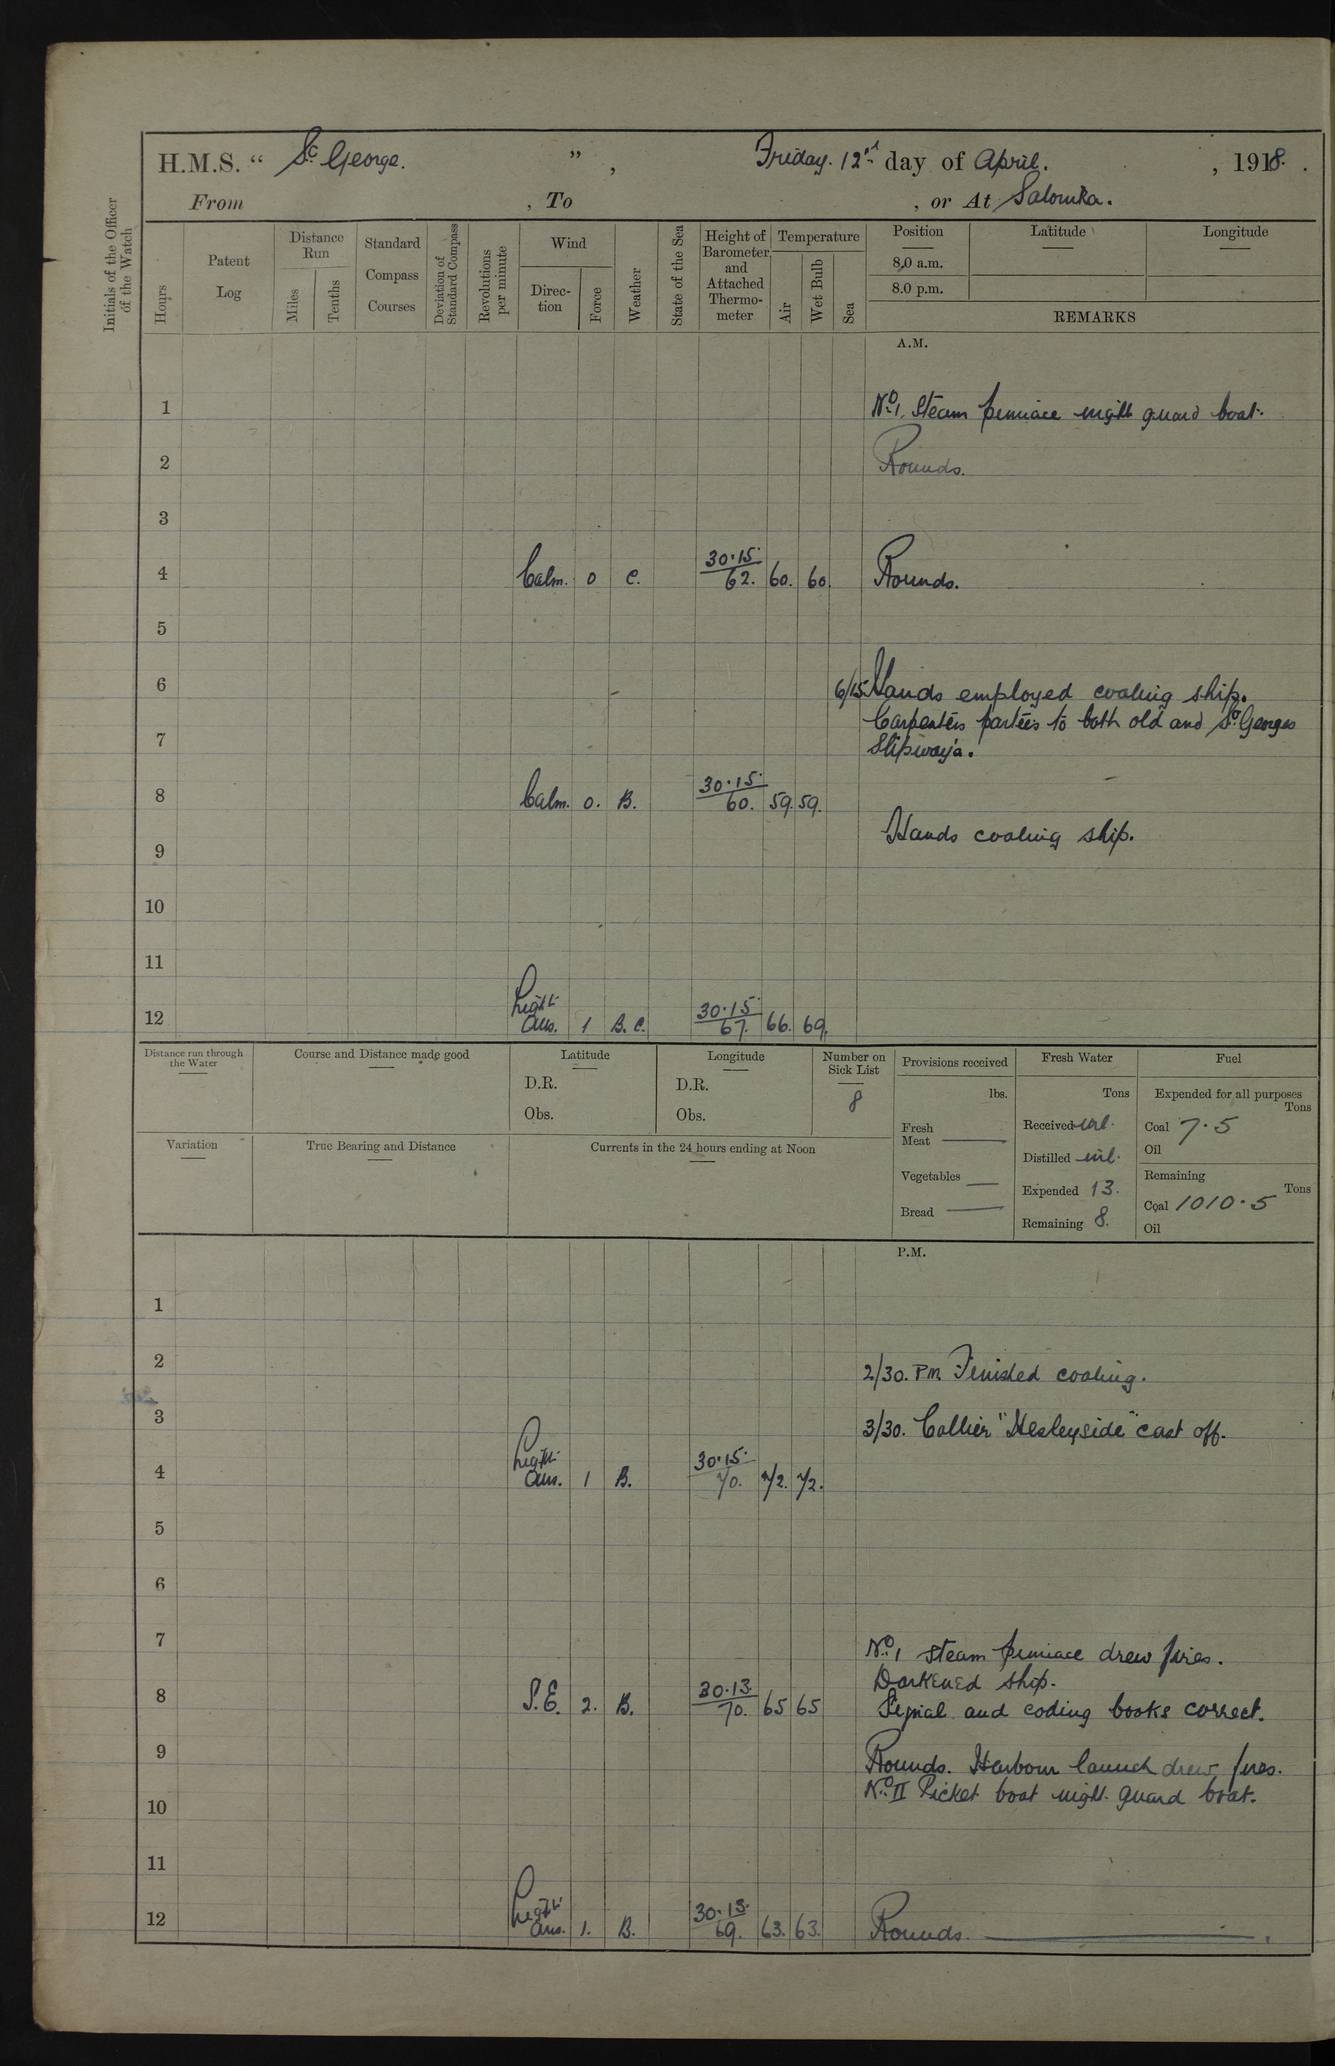 H.M.S. " St George. ", Friday. 12th day of April. , 1918.
From , To , or At Salonika.
Initials of the Officer of the Watch
Hours
Patent Log
Distance Run
Miles
Tenths
Standard Compass Courses
Deviation of Standard Compass
Revolutions per minute
Wind
Direction
Force
Weather
State of the Sea
Height of Barometer and Attached Thermometer
Temperature
Air
Wet Bulb
Sea
Position Latitude Longitude
8.0 a.m.
8.0 p.m.
REMARKS
A.M.
1 No. 1. Steam pinnace night guard boat.
2 Rounds.
3
4 Calm. 0 C. 30.15 62. 60. 60. Rounds.
5
6 6/15 Hands employed coaling ship.
Carpenters parties to both old and St Georges
7 Slipways.
8 Calm. 0. B. 30.15. 60. 59. 59.
Hands coaling ship.
9
10
11
12 Light Airs. 1 B.C. 30.15. 67. 66. 69.
Distance run through the Water
Course and Distance made good
Latitude
D.R.
Obs.
Longitude
D.R.
Obs.
Number on Sick List
8
Provisions received
lbs.
Fresh Meat
Vegetables
Bread
Fresh Water
Tons
Received nil.
Distilled nil.
Expended 13.
Remaining 8.
Fuel
Expended for all purposes
Tons
Coal 7.5
Oil
Remaining
Tons
Coal 1010.5
Oil
Variation
True Bearing and Distance
Currents in the 24 hours ending at Noon
P.M.
1
2 2/30. PM Finished coaling.
3 3/30. Collier "Hesleyside" cast off.
4 Light Airs. 1 B. 30.15. 70. 72. 72.
5
6
7 No. 1 steam pinnace drew fires.
Darkened ship.
8 S.E. 2. B. 30.13. 70. 65 65 Signal and coding books correct.
9 Rounds. Harbour launch drew fires.
No. II Picket boat night guard boat.
10
11
12 Light Airs. 1. B. 30.13. 69. 63. 63. Rounds.